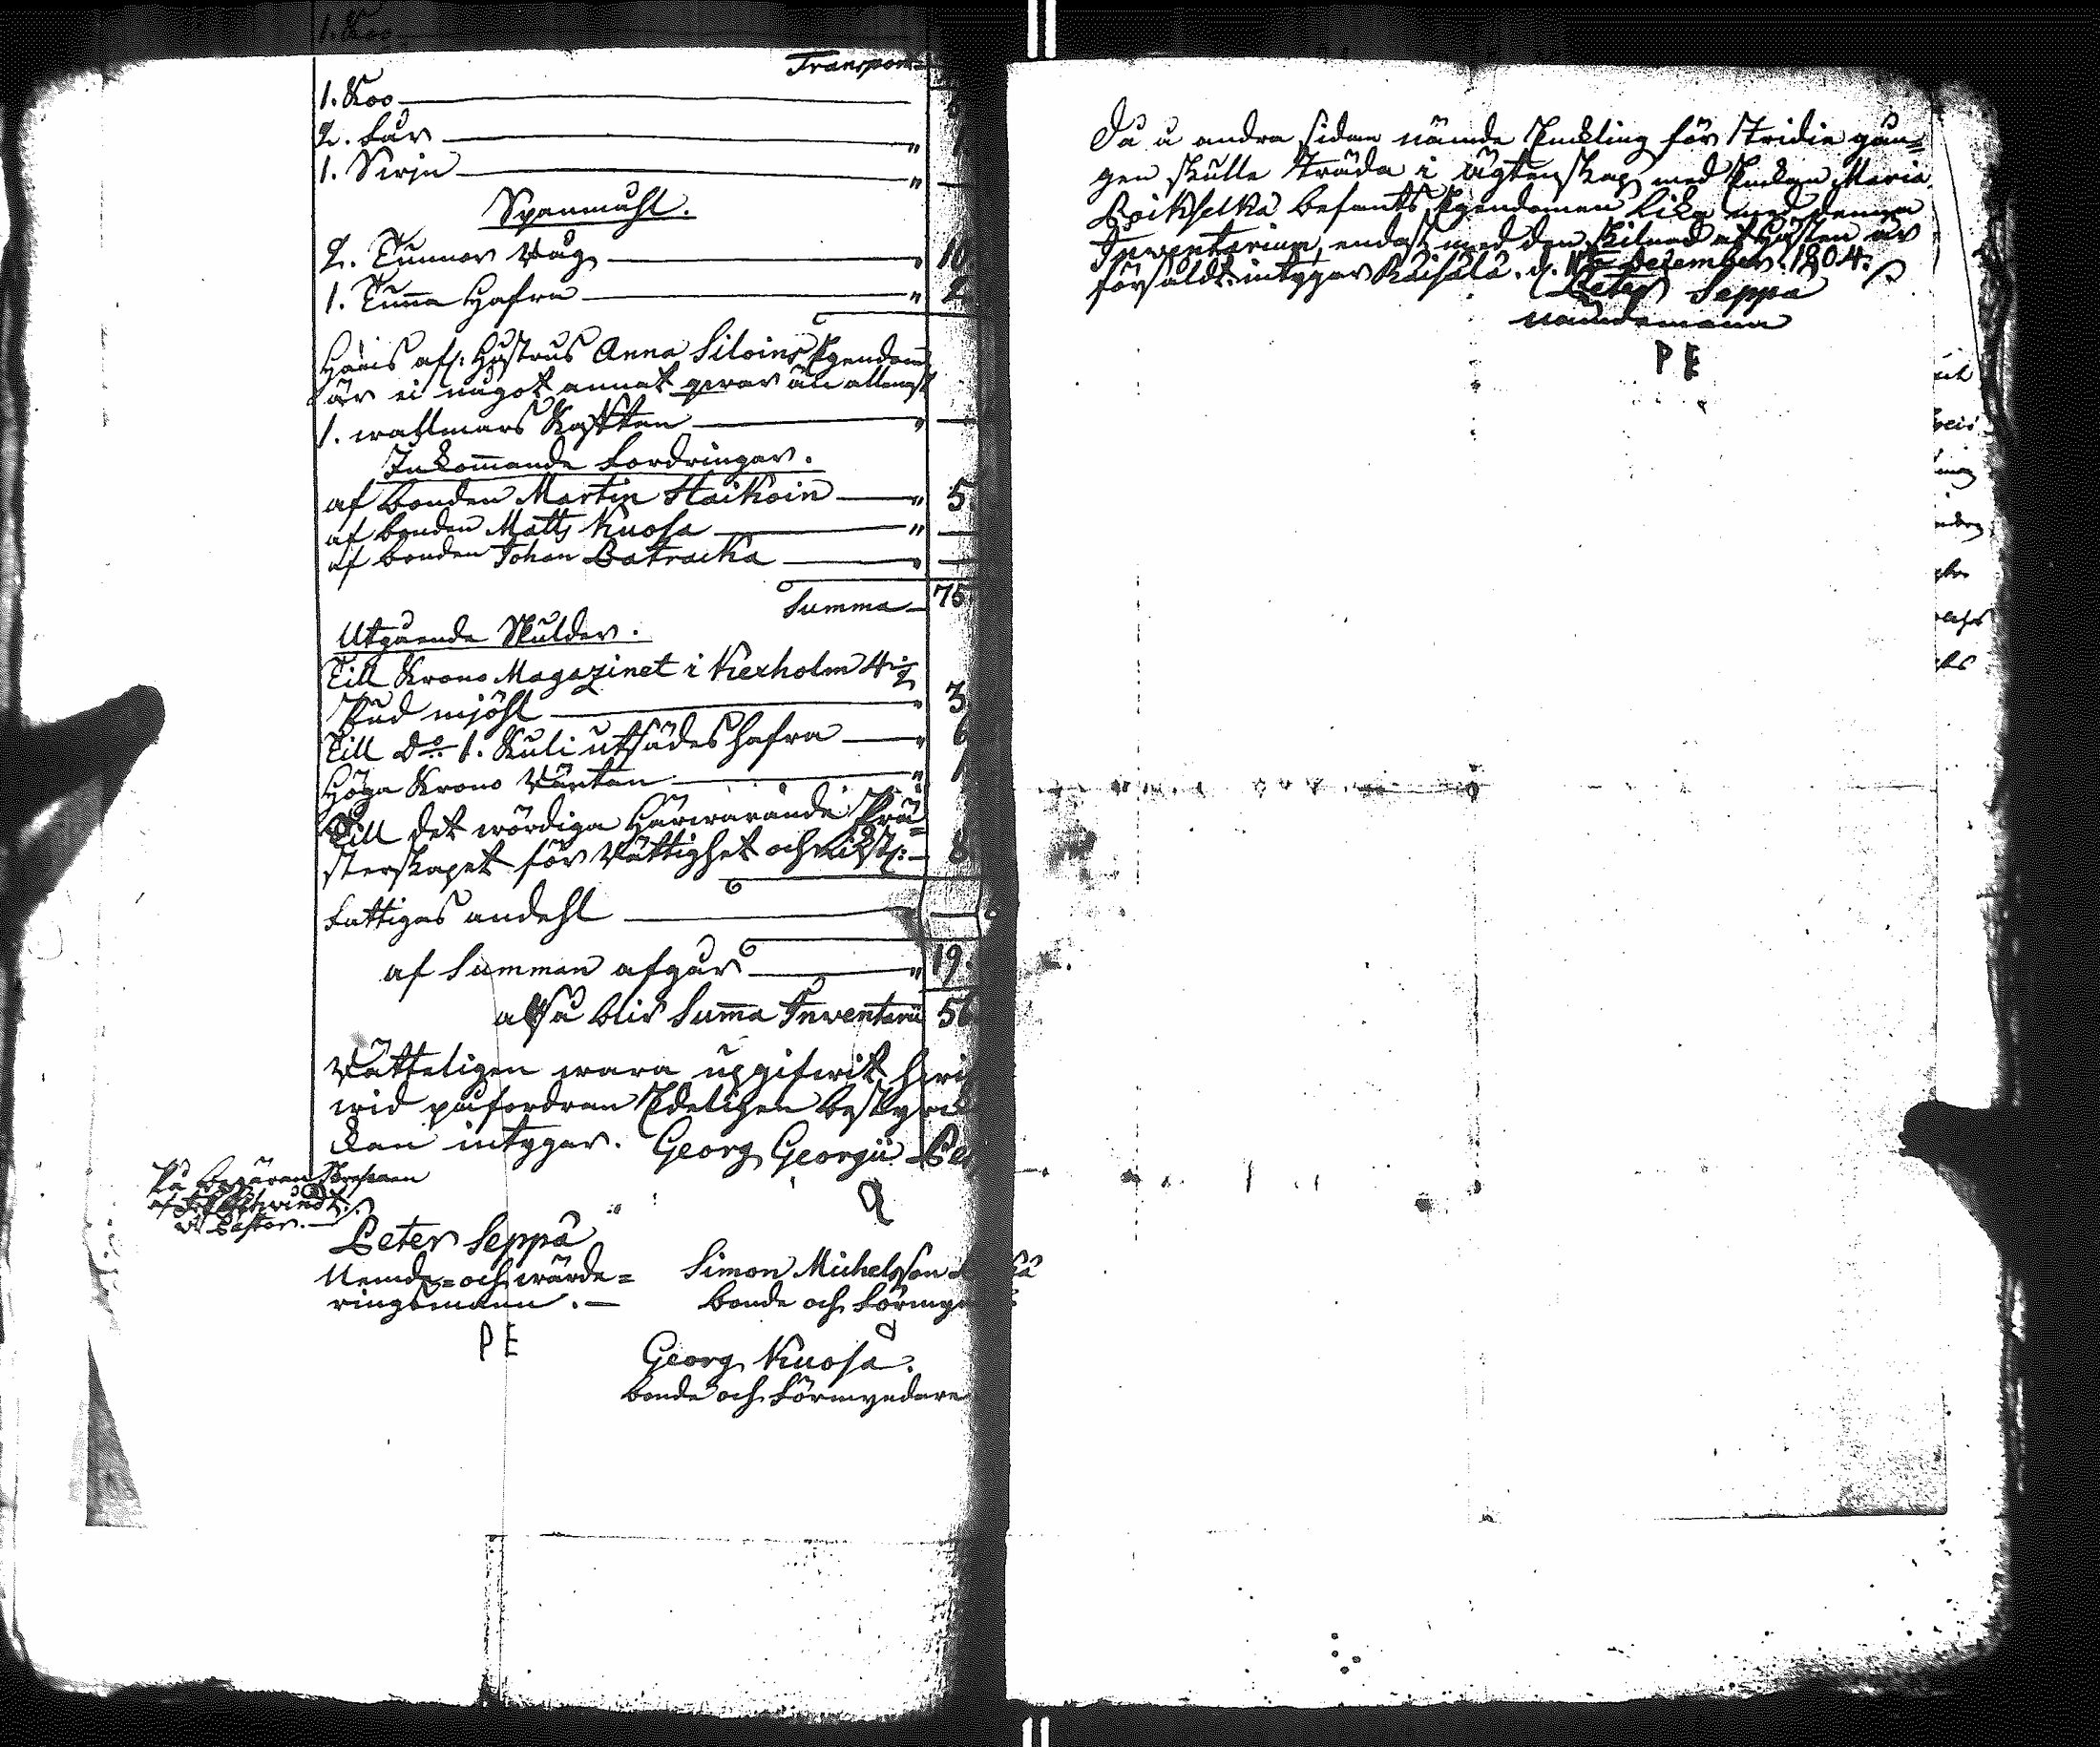 Transport
1. Koo
2. Får
1. Swin
Spanmåhl.
2. Tunnor Råg 10
1. Tunna Hafra 2
Hans afl: Hustrus Anna Siloins Egendom
är ei något annat qwar än allenast
1. wallmars Kastan
Inkommande Fordringar.
af bonden Martin Haikoin 5
af bonden Matts Kuosa
af bonden Johan Patracka
Summa 75
Utgående Skulder.
Till Krono Magazinet i Kexholm 4 1/2
Pud mjöhl 3
Till Do 1. Kuli utsädes hafra 6
Höga Krono Räntan 1
Till det wördiga Härwarande Prä=
sterskapet för Rättighet och 8
Fattigas andehl
af Summan afgår 19.
altså blir Summa Inventarii 56
Rätteligen wara upgifwit
wid påfordran Edeligen
kan intygar. Georg Georgii
På begäran
Pastor.
Peter Seppä
Nemde= och wärde=
ringsman.
P E
Simon Michelsson
bonde och
Georg Kuosa.
bonde och Förmyndare
Då å andra sidan nämde Enkling för tridie gån=
gen skulle träda i ägtenskap med Enkan Maria
befants Egendomen lika med denna
Inventarium, endast med den skilnad at Hästen är
försåldt. intygar Räisälä. d. Decemb. 1804.
Peter Seppä
Nämdeman
P E